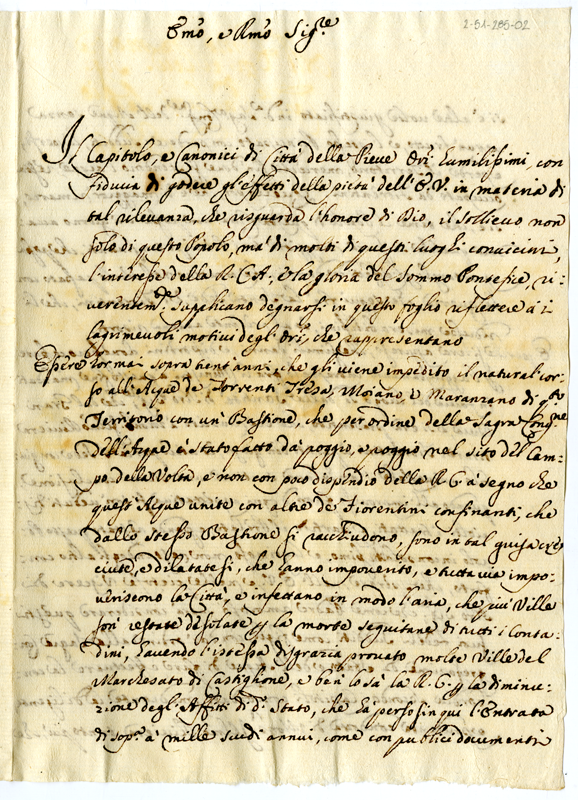 2-51-285-02
Emo, e Rmo Sigre
Il Capitolo, e Canonici di Città della Pieve Ori Humilissimi, con
fiducia di godere gl'effetti della pietà dell'E.V. in materia di
tal rilevanza, che risguarda l'honore di Dio, il sollievo non
solo di questo Popolo, mà di molti di questi luoghi convicini,
l'interesse della R.C.A., e la gloria del Sommo Pontefice, ri-
verentemte supplicano degnarsi in questo foglio riflettere à i
lagrimevoli motivi degl'Ori, che rappresentano
Essere hormai sopra trent'anni, che gli viene impedito il natural cor-
so all'Acque de Torrenti Tresa, Moiano, e Maranzano di qsto
Territorio con un Bastione, che per ordine della Sagra Congne
dell'Acque è stato fatto dà poggio, e poggio nel sito del Cam-
po della Volta, e non con poco dispendio della R.C. à segno che
quest'Acque unite con altre de Fiorentini confinanti, che
dallo stesso Bastione si racchiudono, sono in tal guisa cre-
sciute, e dilatatesi, che hanno impoverito, e tutta via impo-
veriscono la Città, e infettano in modo l'aria, che più Ville
son restate desolate p la morte seguitane di tutti i Conta-
dini, havendo l'istessa disgrazia provato molte Ville del
Marchesato di Castiglione, e ben lo sà la R.C. p la diminu-
zione degl'Affitti di do Stato, che hà perso sin qui l'Entrata
di sopa à mille scudi annui, come con publici documenti